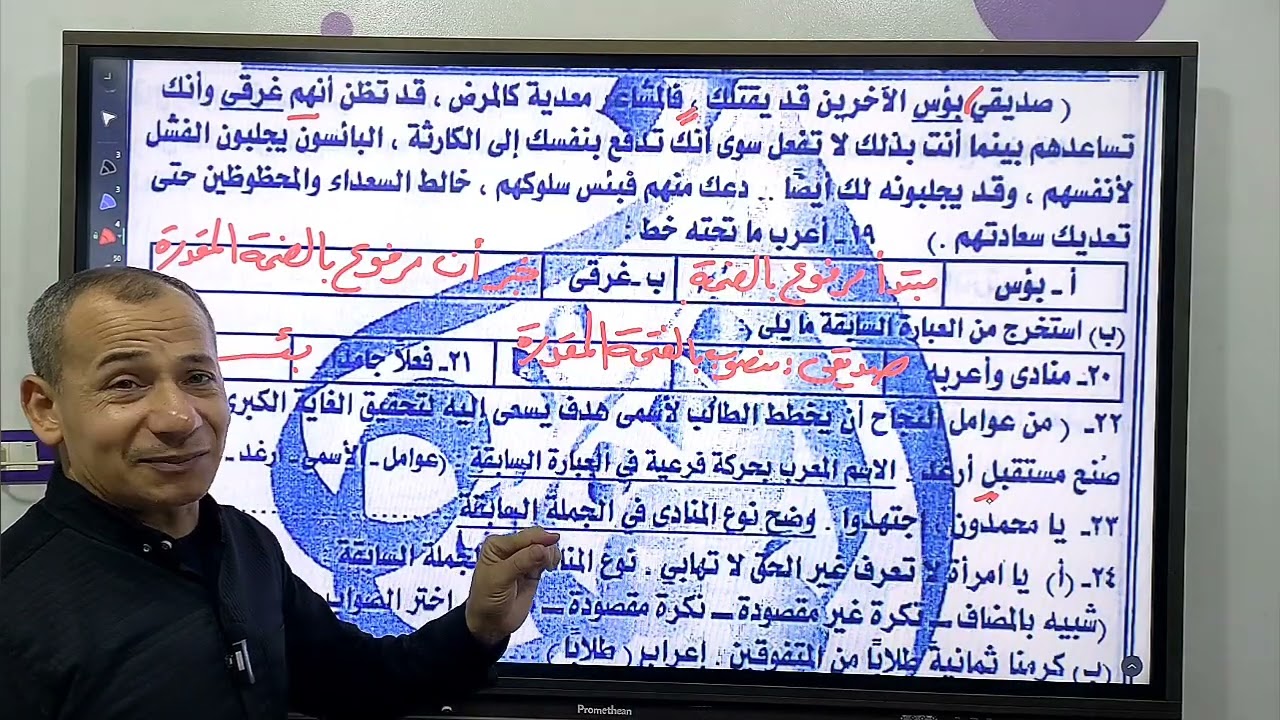 ( صديقي بؤس الآخرين قد يقتلك ، فالمشاعر معدية كالمرض ، قد تظن أنهم غرقى وأنك
تساعدهم بينما أنت بذلك لا تفعل سوى أنك تدفع بنفسك إلى الكارثة ، البائسون يجلبون الفشل
لأنفسهم ، وقد يجلبونه لك أيضًا .. دعك منهم فبئس سلوكهم ، خالط السعداء والمحظوظين حتى
تعديك سعادتهم .) ١٩ـ أعرب ما تحته خط :
أ ـ بؤس مبتدأ مرفوع بالضمة ب ـ غرقى خبر أن مرفوع بالضمة المقدرة
(ب) استخرج من العبارة السابقة ما يلى :
٢٠ـ منادى وأعربه صديقى : منصوب بالفتحة المقدرة ٢١ـ فعلًا جامدًا بئس
٢٢ـ ( من عوامل النجاح أن يخطط الطالب لأسمى هدف يسعى إليه لتحقيق الغاية الكبرى
صُنع مستقبل أرغد . الاسم المعرب بحركة فرعية فى العبارة السابقة (عوامل ـ الأسمى ـ أرغد ـ
٢٣ـ يا محمدون اجتهدوا . وضح نوع المنادى فى الجملة السابقة ............
٢٤ـ (أ) يا امرأة لا تعرف غير الحق لا تهابي . نوع الجملة السابقة :
(شبيه بالمضاف ــ نكرة غير مقصودة ــ نكرة مقصودة ــ اختر الصواب
(ب) كرمنا ثمانية طلابًا من المتفوقين . إعراب ( طلابًا )
Promethean